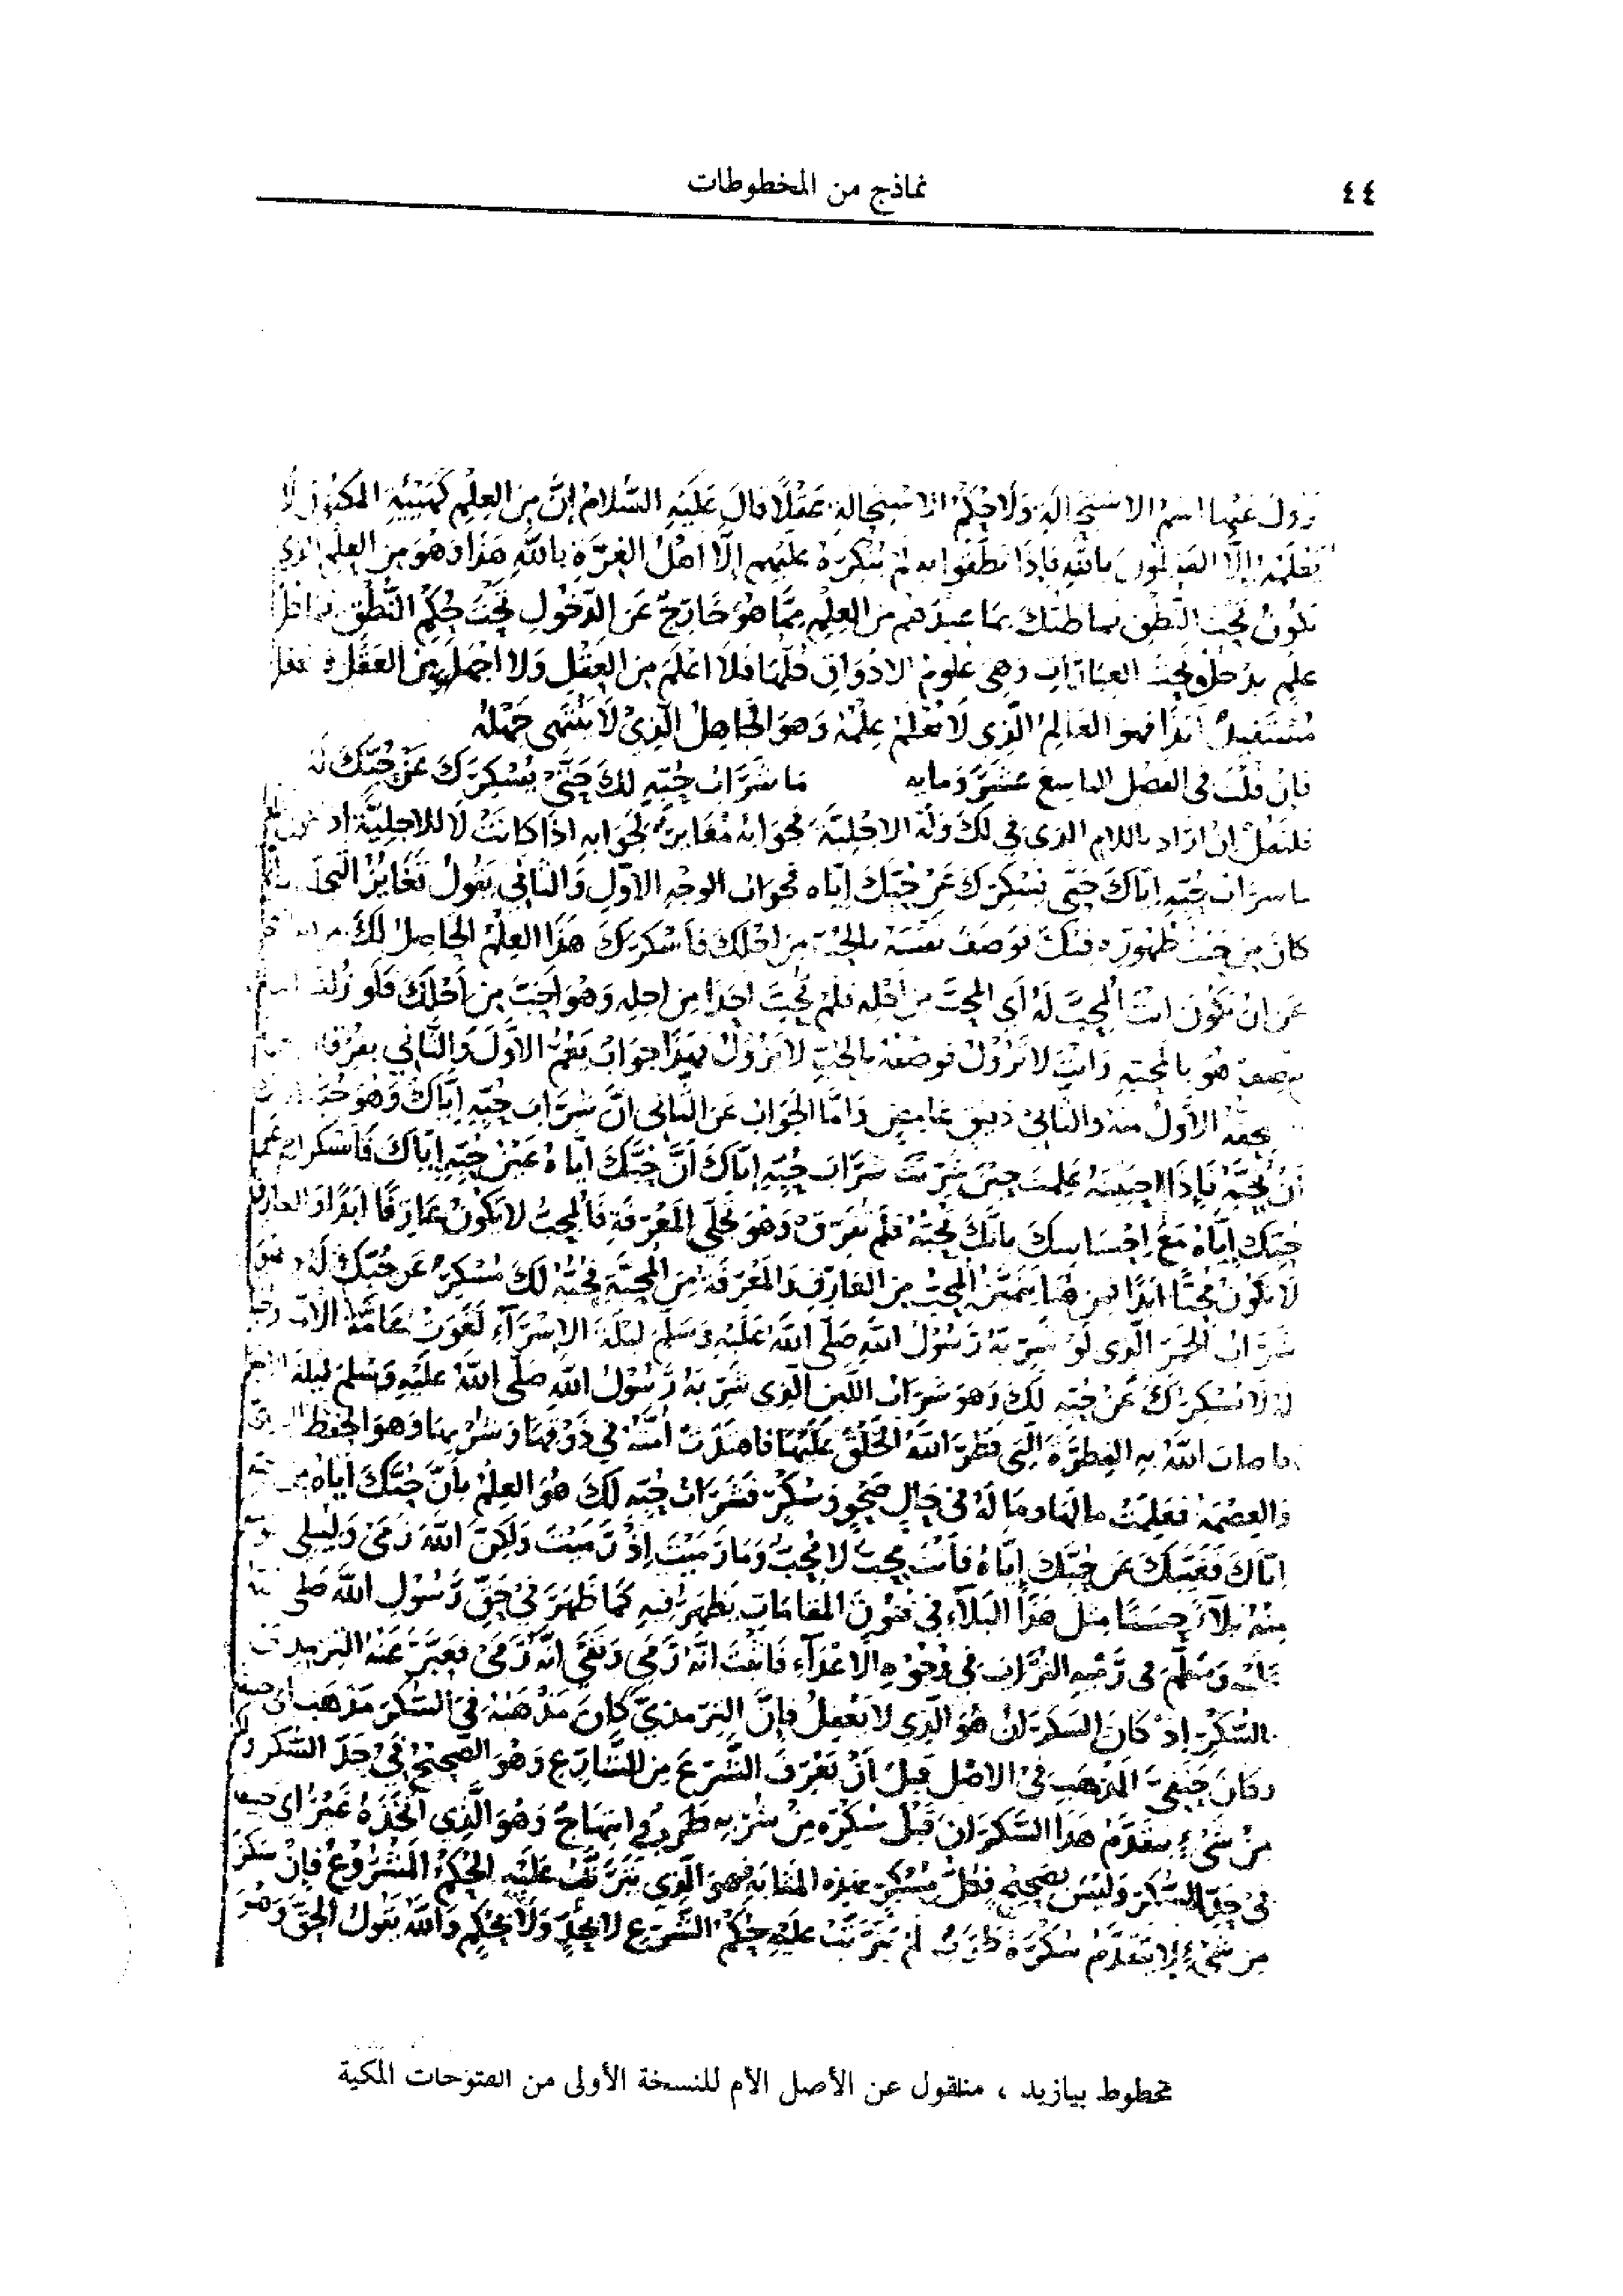 ٤٤
نماذج من المخطوطات
عنها اسم الاستحالة ولا حكم الاستحالة عقلا قال عليه السلام إنّ من العلم كهيئة المكنون لا
يعلمه إلّا العالمون بالله فإذا نطقوا به لم ينكره عليهم إلّا اهل الغرّة بالله هذا وهو من العلم الذي
يكون تحت النطق فما ظنك بما عندهم من العلم ممّا هو خارج عن الدخول تحت حكم النّطق فما كل
علم يدخل تحت العبارات وهي علوم الاذواق كلّها فلا اعلم من العقل ولا اجهل من العقل فالعقل
مستفيد ابدا فهو العالم الّذي لا يُعلم علمه وهو الجاهل الّذي لا ينتهي جهله
فإن قلت في الفصل التاسع عشر ومايه ما شراب حبّه لك حتّى يسكرك عن حبّك له
فلنقل إن اراد باللام الذي في لك وله الاجلية فجوابه مغاير لجوابه اذا كانت لا للاجليّة
ما شراب حبّه إيّاك حتى يسكرك عن حبّك إيّاه فجواب الوجه الاوّل والثاني يقول تغاير التجلي
كان من حيث ظهوره فيك فوصف نفسه بالحبّ من اجلك فأسكرك هذا العلم الحاصل لك
عن ان تكون انت المحبّ له أي المحبّ من أجله فلم تحبّ احدا من اجله وهو احبّ من اجلك فلو زلت
يتصف هو بالمحبة وانت لا تزول فوصفه بالحبّ لا يزول فهذا جواب يعمّ الاوّل والثّاني بفرقان
يحقّه الاوّل منه والثاني دقيق غامض وأمّا الجواب عن الثاني انّ شراب حبّه إيّاك وهو
أن تحبّه فإذا احببته علمت حين شربت شراب حبّه إيّاك أنّ حبّك ايّاه عين حبّه إيّاك فأسكرك عن
حبّك إيّاه مع إحساسك بانّك تحبّه فلم تفرّق وهو تجلّي المعرفة فالمحبّ لا يكون عارفا ابدا والعارف
لا يكون محبّا ابدا فمن هنا يتميّز المحبّ من العارف والمعرفة من المحبّة فحبّه لك مسكره عن حبّك له وهو
شراب الخمر الّذي لو شربه رسول الله صلّى الله عليه وسلّم ليلة الإسراء لغوت عامّة الامّة
له لا يسكرك عن حبّه لك وهو شراب اللّبن الّذي شربه رسول الله صلّى الله عليه وسلّم ليلة
فاصاب الله به الفطرة الّتي فطر الله الخلق عليها فاهتدت أمّته في ذوقها وشربها وهو الحفظ
والعصمة فعلمت ما لها وما له في حال صحو وسكر فشراب حبّه لك هو العلم بأنّ حبّك ايّاه من
إيّاك فغيّبك عن حبّك إيّاه فأنت محبّ لا محبّ وما رميت إذ رميت ولكنّ الله رمى وليبلي
منه بلاء حسنا مثل هذا البلاء في فنون المقامات يظهر فيه كما ظهر في حقّ رسول الله صلى
وسلّم في رميه التّراب في وجوه الأعداء فاثبت انّه رمى ونفى انّه رمى فعبّر عنه الترمذي
بالسّكر إذ كان السّكران هو الّذي لا يعقل فإنّ الترمذيّ كان مذهبه في السّكر مذهب
وكان حنفيّ المذهب في الاصل قبل أن يعرف الشّرع من الشّارع وهو الصّحيح في حدّ السّكر
من شيء يتقدّم هذا السّكران قبل سكره من شربه طرب وابتهاج وهو الّذي اتّخذه غير
في حدّ السّكر وليس بصحيح فكلّ مسكر بهذه المثابة فهو الّذي يترتّب عليه الحكم المشروع فإن سكر
من شيء لا يتقدّم سكره طرب لم يترتّب عليه حكم الشّرع لا بحدّ ولا بحكم والله يقول الحقّ وهو
مخطوط بيازيد ، منقول عن الأصل الأم للنسخة الأولى من الفتوحات المكية